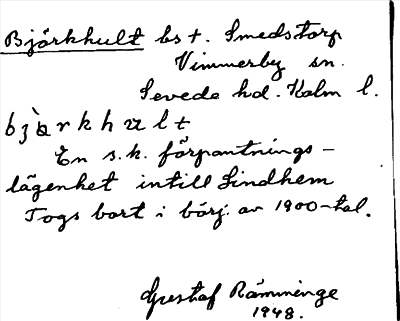 Björkhult bst. Smedstorp
Vimmerby sn.
Sevede hd. Kalm l.
bjàrkhult
En s.k. förpantnings-
lägenhet intill Lindhem
Togs bort i börj. av 1900-tal.
Gustaf Rämminge
1948.